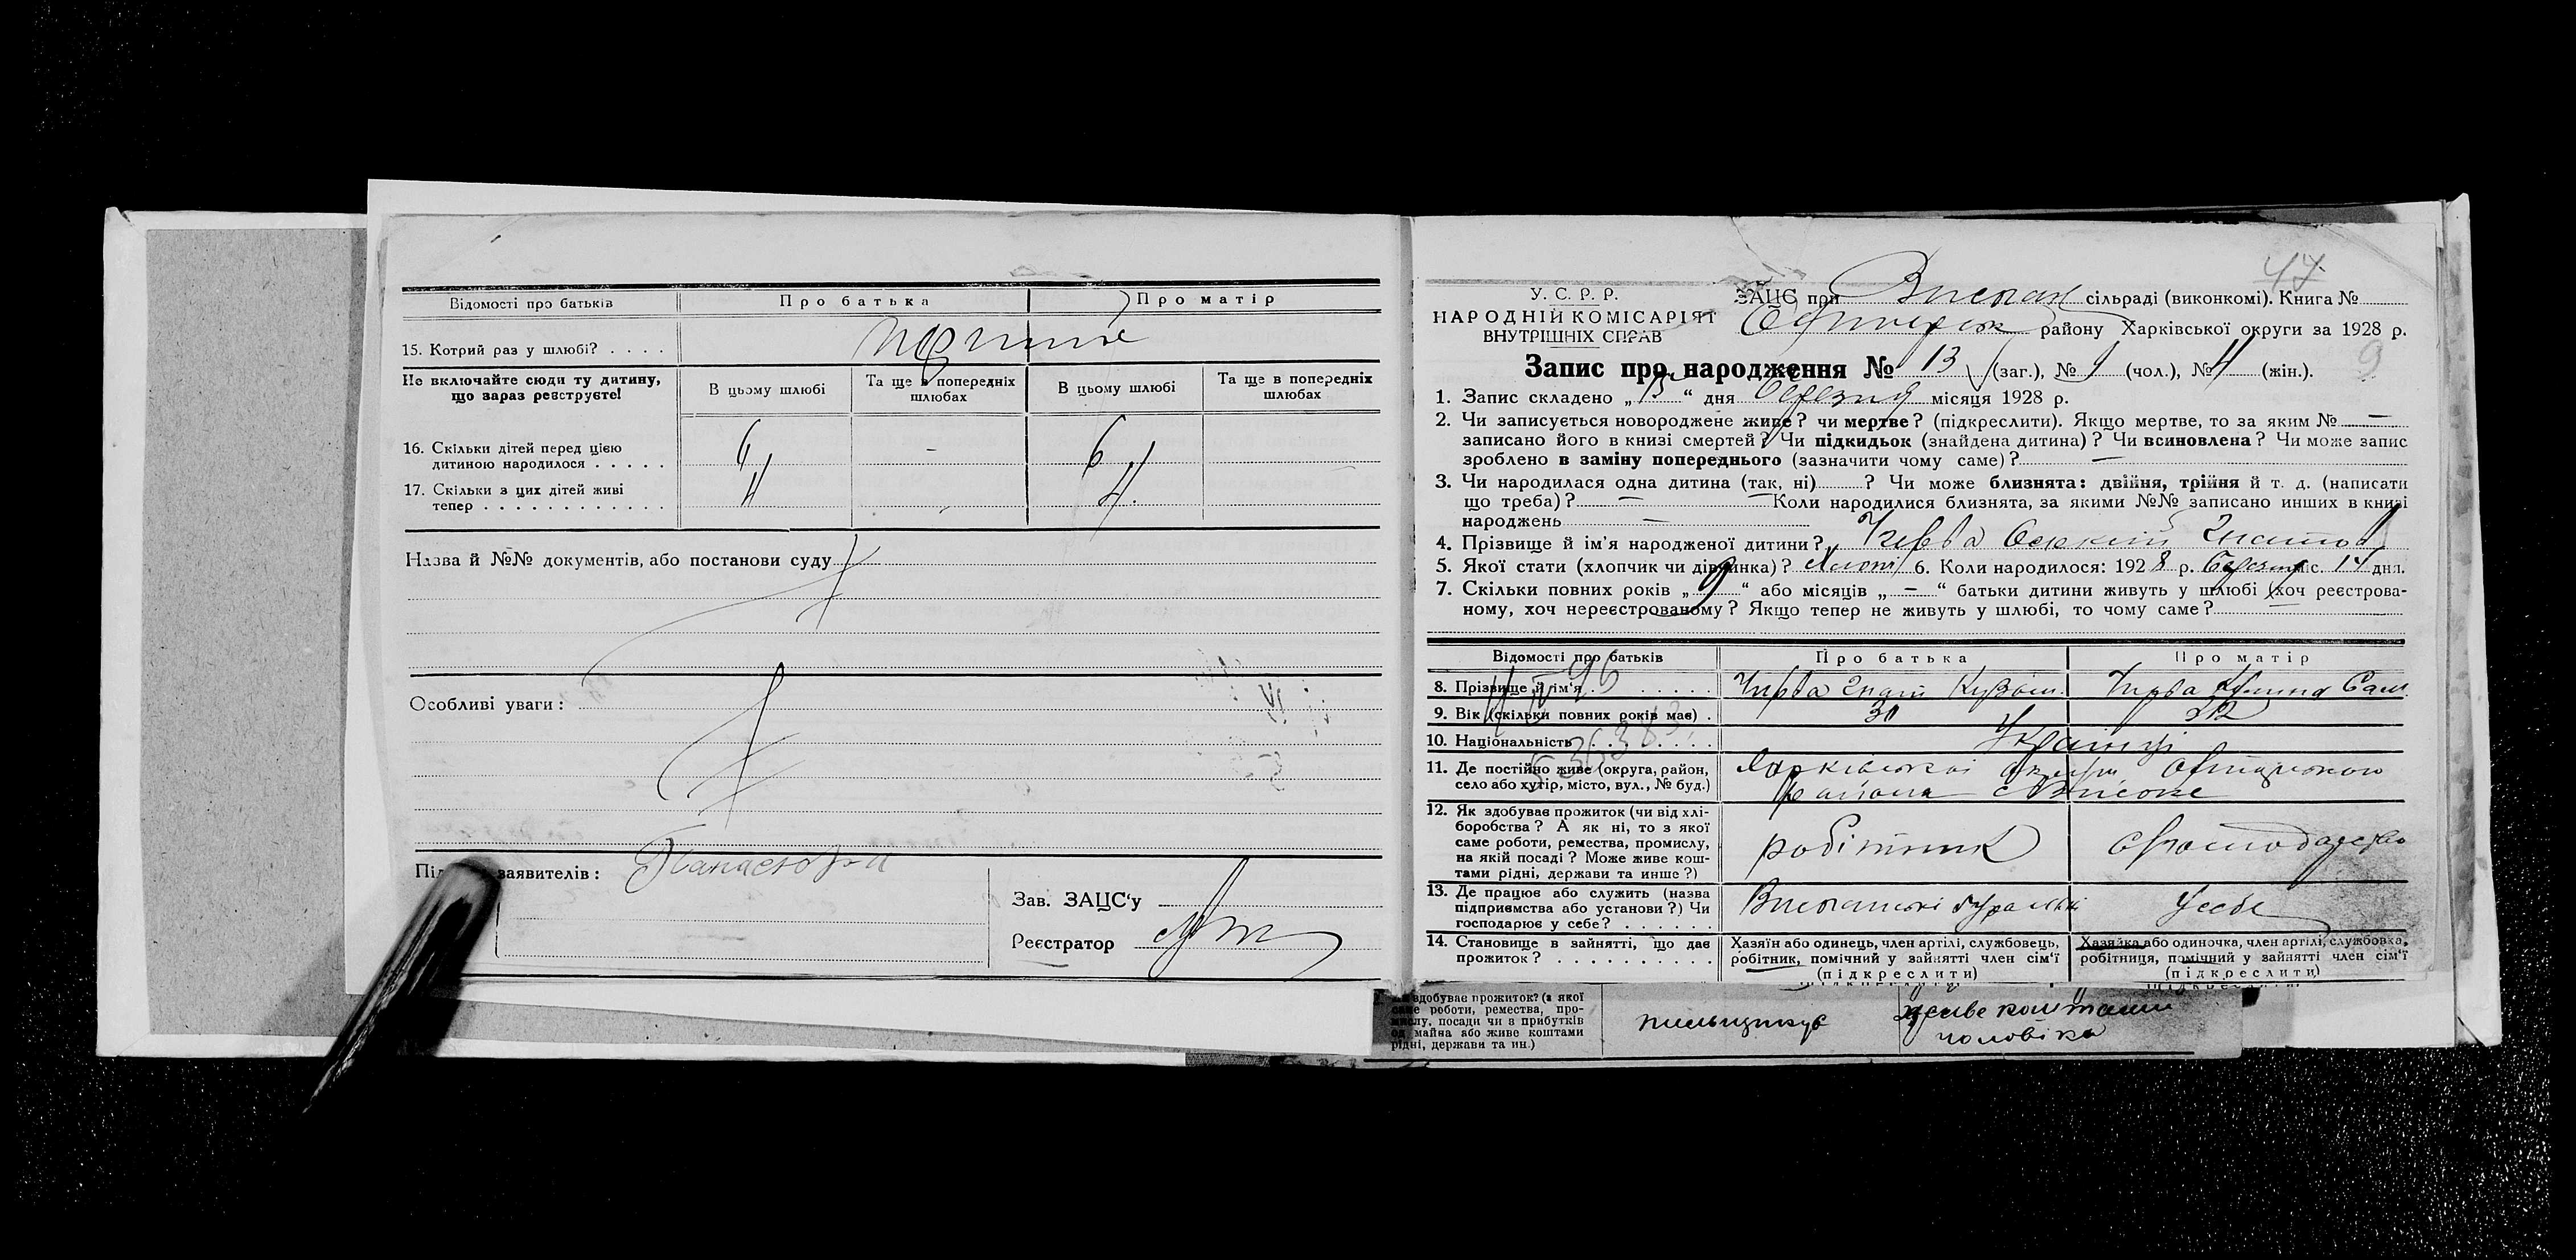 Відомості про батьків
Про батька
Про матір
15. Котрий раз у шлюбі? . . . .
Не включайте сюди ту дитину,
що зараз реєструєте!
В цьому шлюбі
Та ще в попередніх
шлюбах
В цьому шлюбі
Та ще в попередніх
шлюбах
16. Скільки дітей перед цією
дитиною народилося . . . . .
6
–
6
17. Скільки з цих дітей живі
тепер . . . . . . . . . . . .
4
4.
Назва й №№ документів, або постанови суду
Особливі уваги:
Під
заявителів:
Зав. ЗАЦС'у
Реєстратор
У. С. Р. Р.
НАРОДНІЙ КОМІСАРІЯТ
ВНУТРІШНІХ СПРАВ
47
ЗАЦС при сільраді (виконкомі). Книга №
району Харківської округи за 1928 р.
9
Запис про народження № 13 (заг.), № 9 (чол.), № 4 (жін.).
1. Запис складено „ 15 “ дня березня місяця 1928 р.
2. Чи записується новороджене живе? чи мертве? (підкреслити). Якщо мертве, то за яким № —
записано його в книзі смертей? Чи підкидьок (знайдена дитина)? Чи всиновлена? Чи може запис
зроблено в заміну попереднього (зазначити чому саме)? —
3. Чи народилася одна дитина (так, ні) ? Чи може близнята: двійня, трійня й т. д. (написати
що треба)? — — Коли народилися близнята, за якими №№ записано инших в книзі
народжень —
4. Прізвище й ім'я народженої дитини? Черва
5. Якої статі (хлопчик чи дівчинка)? хлопч 6. Коли народилося: 1928 р. Березня міс. 14 дня.
7. Скільки повних років „ 9 “ або місяців „ — “ батьки дитини живуть у шлюбі хоч реєстрова-
ному, хоч нереєстрованому? Якщо тепер не живуть у шлюбі, то чому саме? —
Відомості про батьків
Про батька
Про матір
8. Прізвище й ім'я . . . . . . .
Чирва Гнат Кузьм.
Чирва Сам.
9. Вік (скільки повних років має) .
10. Національність . . . . . . .
Українці
11. Де постійно живе (округа, район,
село або хутір, місто, вул., № буд.)
Харківської округи
района
12. Як здобуває прожиток (чи від хлі-
боробства? А як ні, то з якої
саме роботи, ремества, промислу,
на якій посаді? Може живе кош-
тами рідні, держави та инше?)
робітник
господарство
13. Де працює або служить (назва
підприємства або установи?) Чи
господарює у себе? . . . . . .
У себе
14. Становище в зайнятті, що дає
прожиток? . . . . . . . . . .
Хазяїн або одинець, член артілі, службовець,
робітник, помічний у зайнятті член сім'ї
(підкреслити)
Хазяйка або одиночка, член артілі, службовка,
робітниця, помічний у зайнятті член сім'ї
(підкреслити)
здобуває прожиток? (з якої
саме роботи, ремества, про-
мислу, посади чи з прибутків
од майна або живе коштами
рідні, держави та ин.)
живе коштами
чоловіка